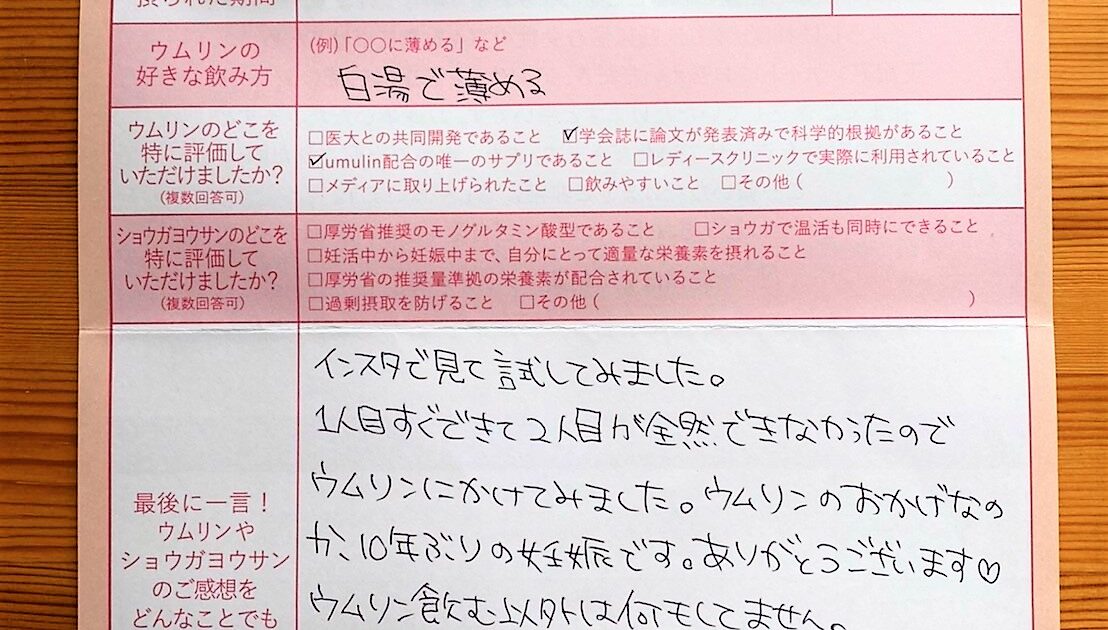 摂られた期間
ウムリンの
好きな飲み方
(例)「〇〇に薄める」など
白湯で薄める
ウムリンのどこを
特に評価して
いただけましたか?
(複数回答可)
□医大との共同開発であること ☑学会誌に論文が発表済みで科学的根拠があること
☑umulin配合の唯一のサプリであること □レディースクリニックで実際に利用されていること
□メディアに取り上げられたこと □飲みやすいこと □その他( )
ショウガヨウサンのどこを
特に評価して
いただけましたか?
(複数回答可)
□厚労省推奨のモノグルタミン酸型であること □ショウガで温活も同時にできること
□妊活中から妊娠中まで、自分にとって適量な栄養素を摂れること
□厚労省の推奨量準拠の栄養素が配合されていること
□過剰摂取を防げること □その他( )
最後に一言!
ウムリンや
ショウガヨウサン
のご感想を
どんなことでも
インスタで見て試してみました。
1人目すぐできて2人目が全然できなかったので
ウムリンにかけてみました。ウムリンのおかげなの
か、10年ぶりの妊娠です。ありがとうございます♡
ウムリン飲む以外は何もしてません。